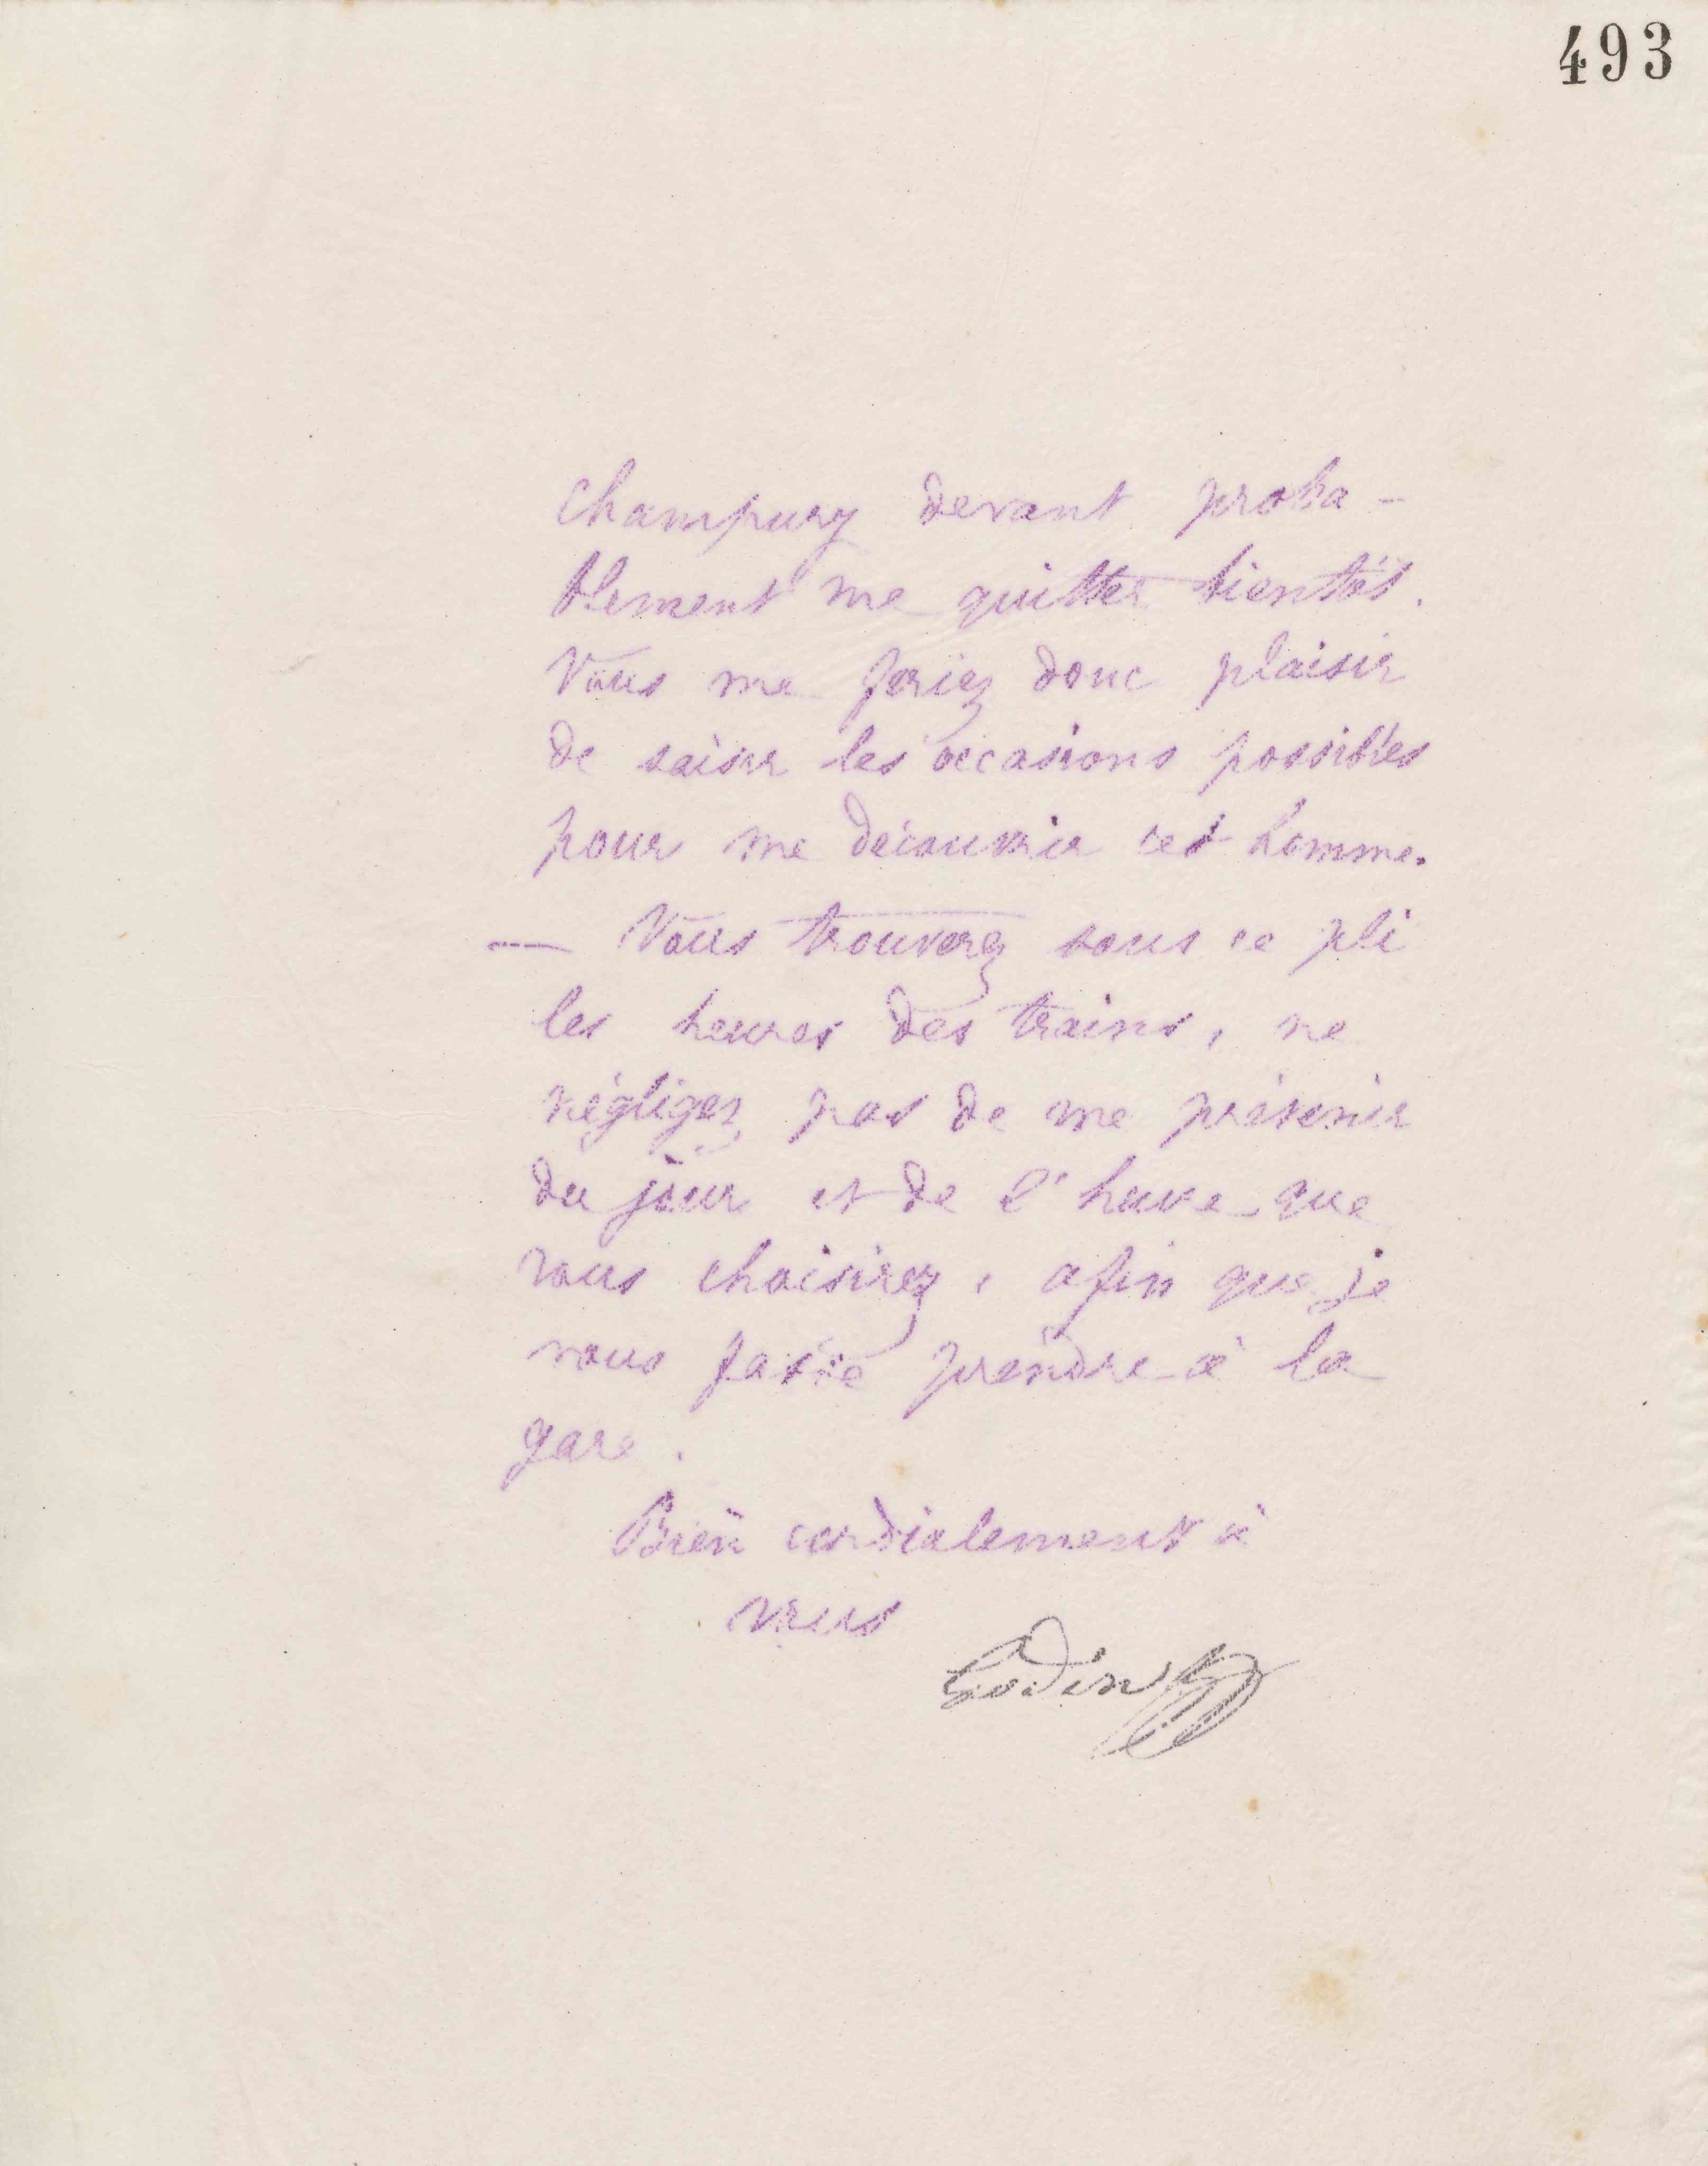 493
Champury devant proba-
blement me quitter bientôt.
Vous me feriez donc plaisir
de saisir les occasions possibles
pour me découvrir cet homme.
— Vous trouverez sous ce pli
les heures des trains, ne
négligez pas de me prévenir
du jour et de l'heure que
vous choisirez, afin que je
vous fasse prendre à la
gare.
Bien cordialement à
vous
Godin